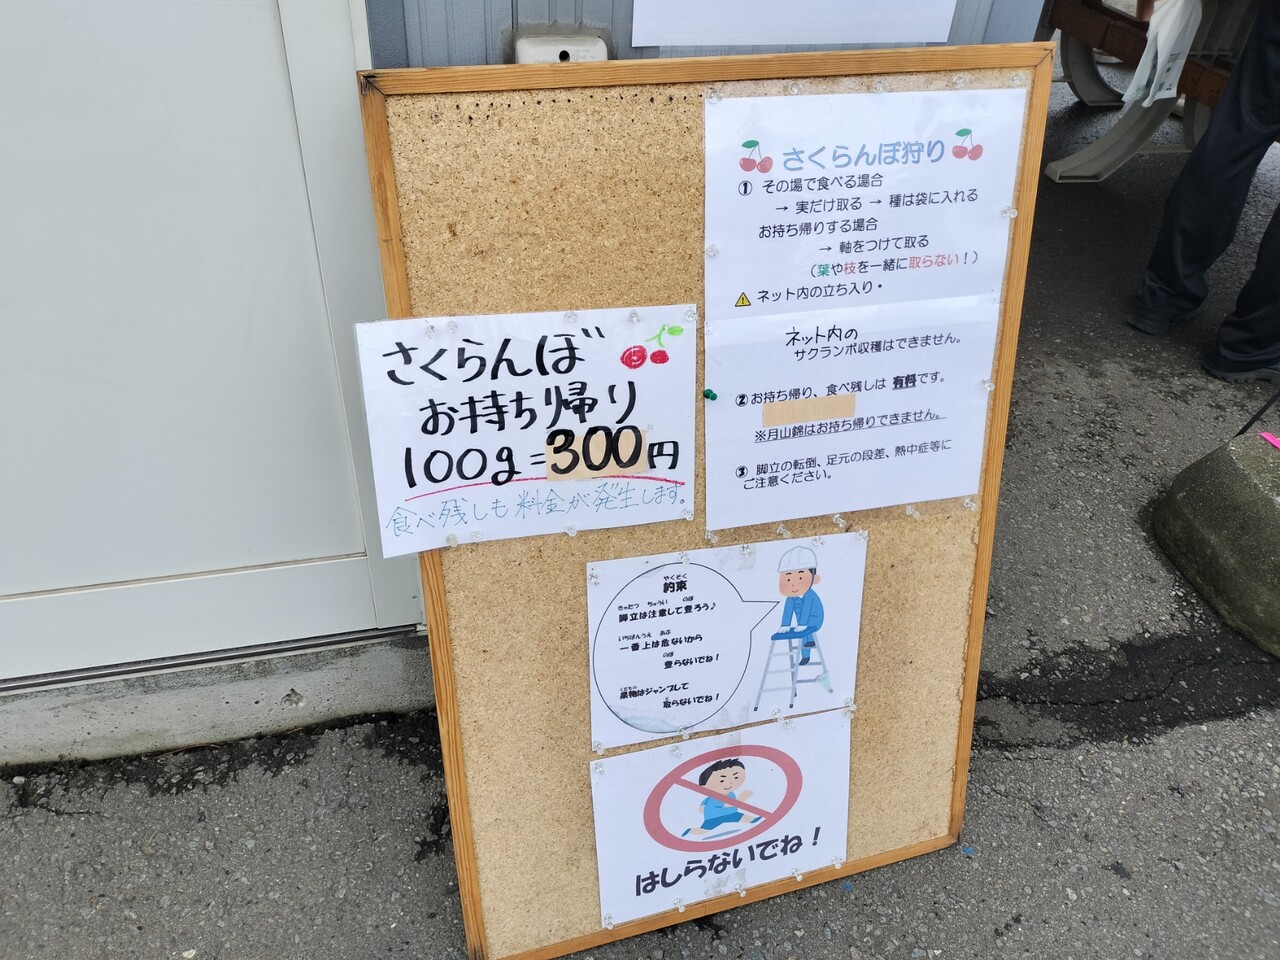 さくらんぼ狩り
① その場で食べる場合
→ 実だけ取る → 種は袋に入れる
お持ち帰りする場合
→ 軸をつけて取る
(葉や枝を一緒に取らない!)
ネット内の立ち入り・
ネット内の
サクランボ収穫はできません。
② お持ち帰り、食べ残しは 有料です。
※月山錦はお持ち帰りできません。
③ 脚立の転倒、足元の段差、熱中症等に
ご注意ください。
さくらんぼ
お持ち帰り
100g=300円
食べ残しも料金が発生します。
やくそく
約束
きゃたつ ちゅうい のぼ
脚立は注意して登ろう♪
いちばんうえ あぶ
一番上は危ないから
のぼ
登らないでね!
くだもの
果物はジャンプして
と
取らないでね!
はしらないでね!